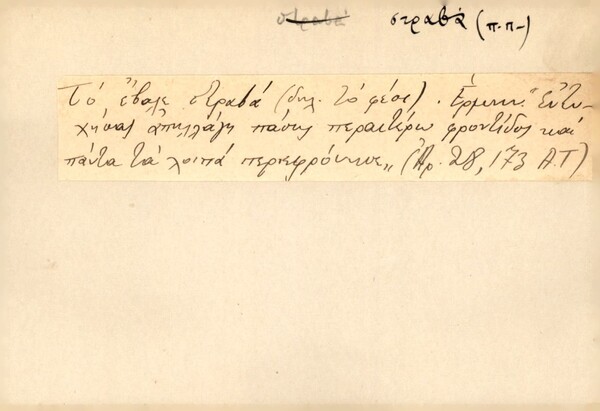 στραβά στραβά (π.π-)
Τό ἔβαλε στραβά (δηλ. τό φέσι). Ἑρμην. "Εὐτυ-
χήσας ἀπηλλάγη πάσης περαιτέρω φροντίδος καί
πάντα τά λοιπά περιεφρόνησε„ (Ἀρ. 28, 173 Α.Τ)